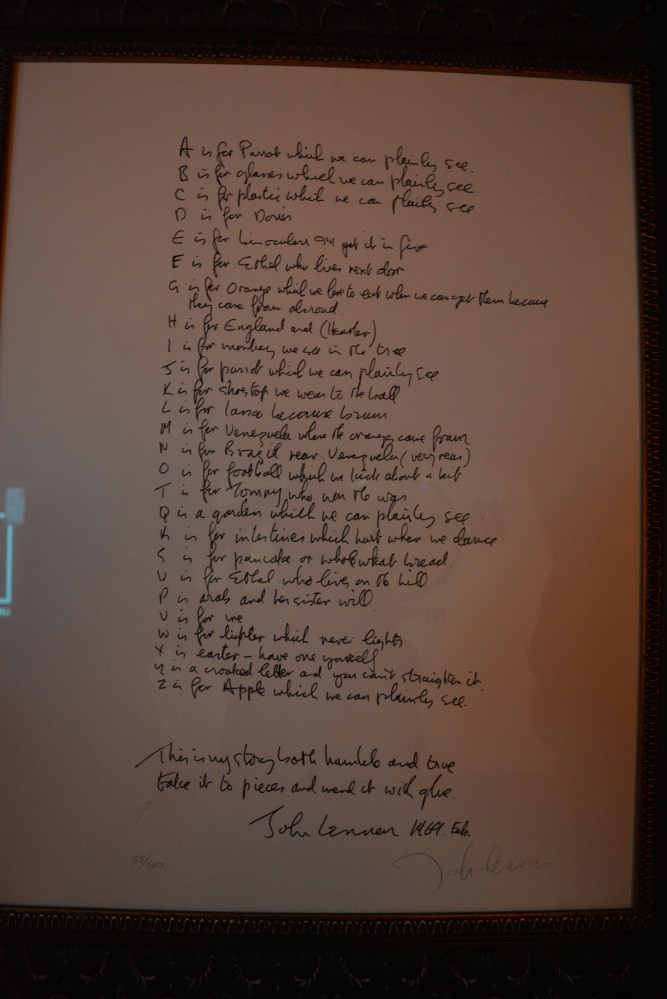 A is for Parrot which we can plainly see.
B is for glasses which we can plainly see
C is for plastic which we can plainly see
D is for Doris
E is for binoculars I'll get it in five
F is for Ethel who lives next door
G is for Orange which we love to eat when we can get them because
they come from abroad.
H is for England and (Heather)
I is for monkey we see in the tree
J is for parrot which we can plainly see
K is for shoetop we wear to the ball
L is for because brum
M is for Venezuela where the oranges come from
N is for Brazil near Venezuela (very near)
O is for football which we kick about a bit
T is for Tommy who won the war
Q is a garden which we can plainly see
R is for intestines which hurt when we dance
S is for pancake or wholewheat bread.
U is for Ethel who lives on the hill
P is arab and her sister will
V is for me
W is for lighter which never lights
X is easter - have one yourself
Y is a crooked letter and you can't straighten it.
Z is for Apple which we can plainly see.
This is my story both humble and true
take it to pieces and mend it with glue.
John Lennon 1969. Feb.